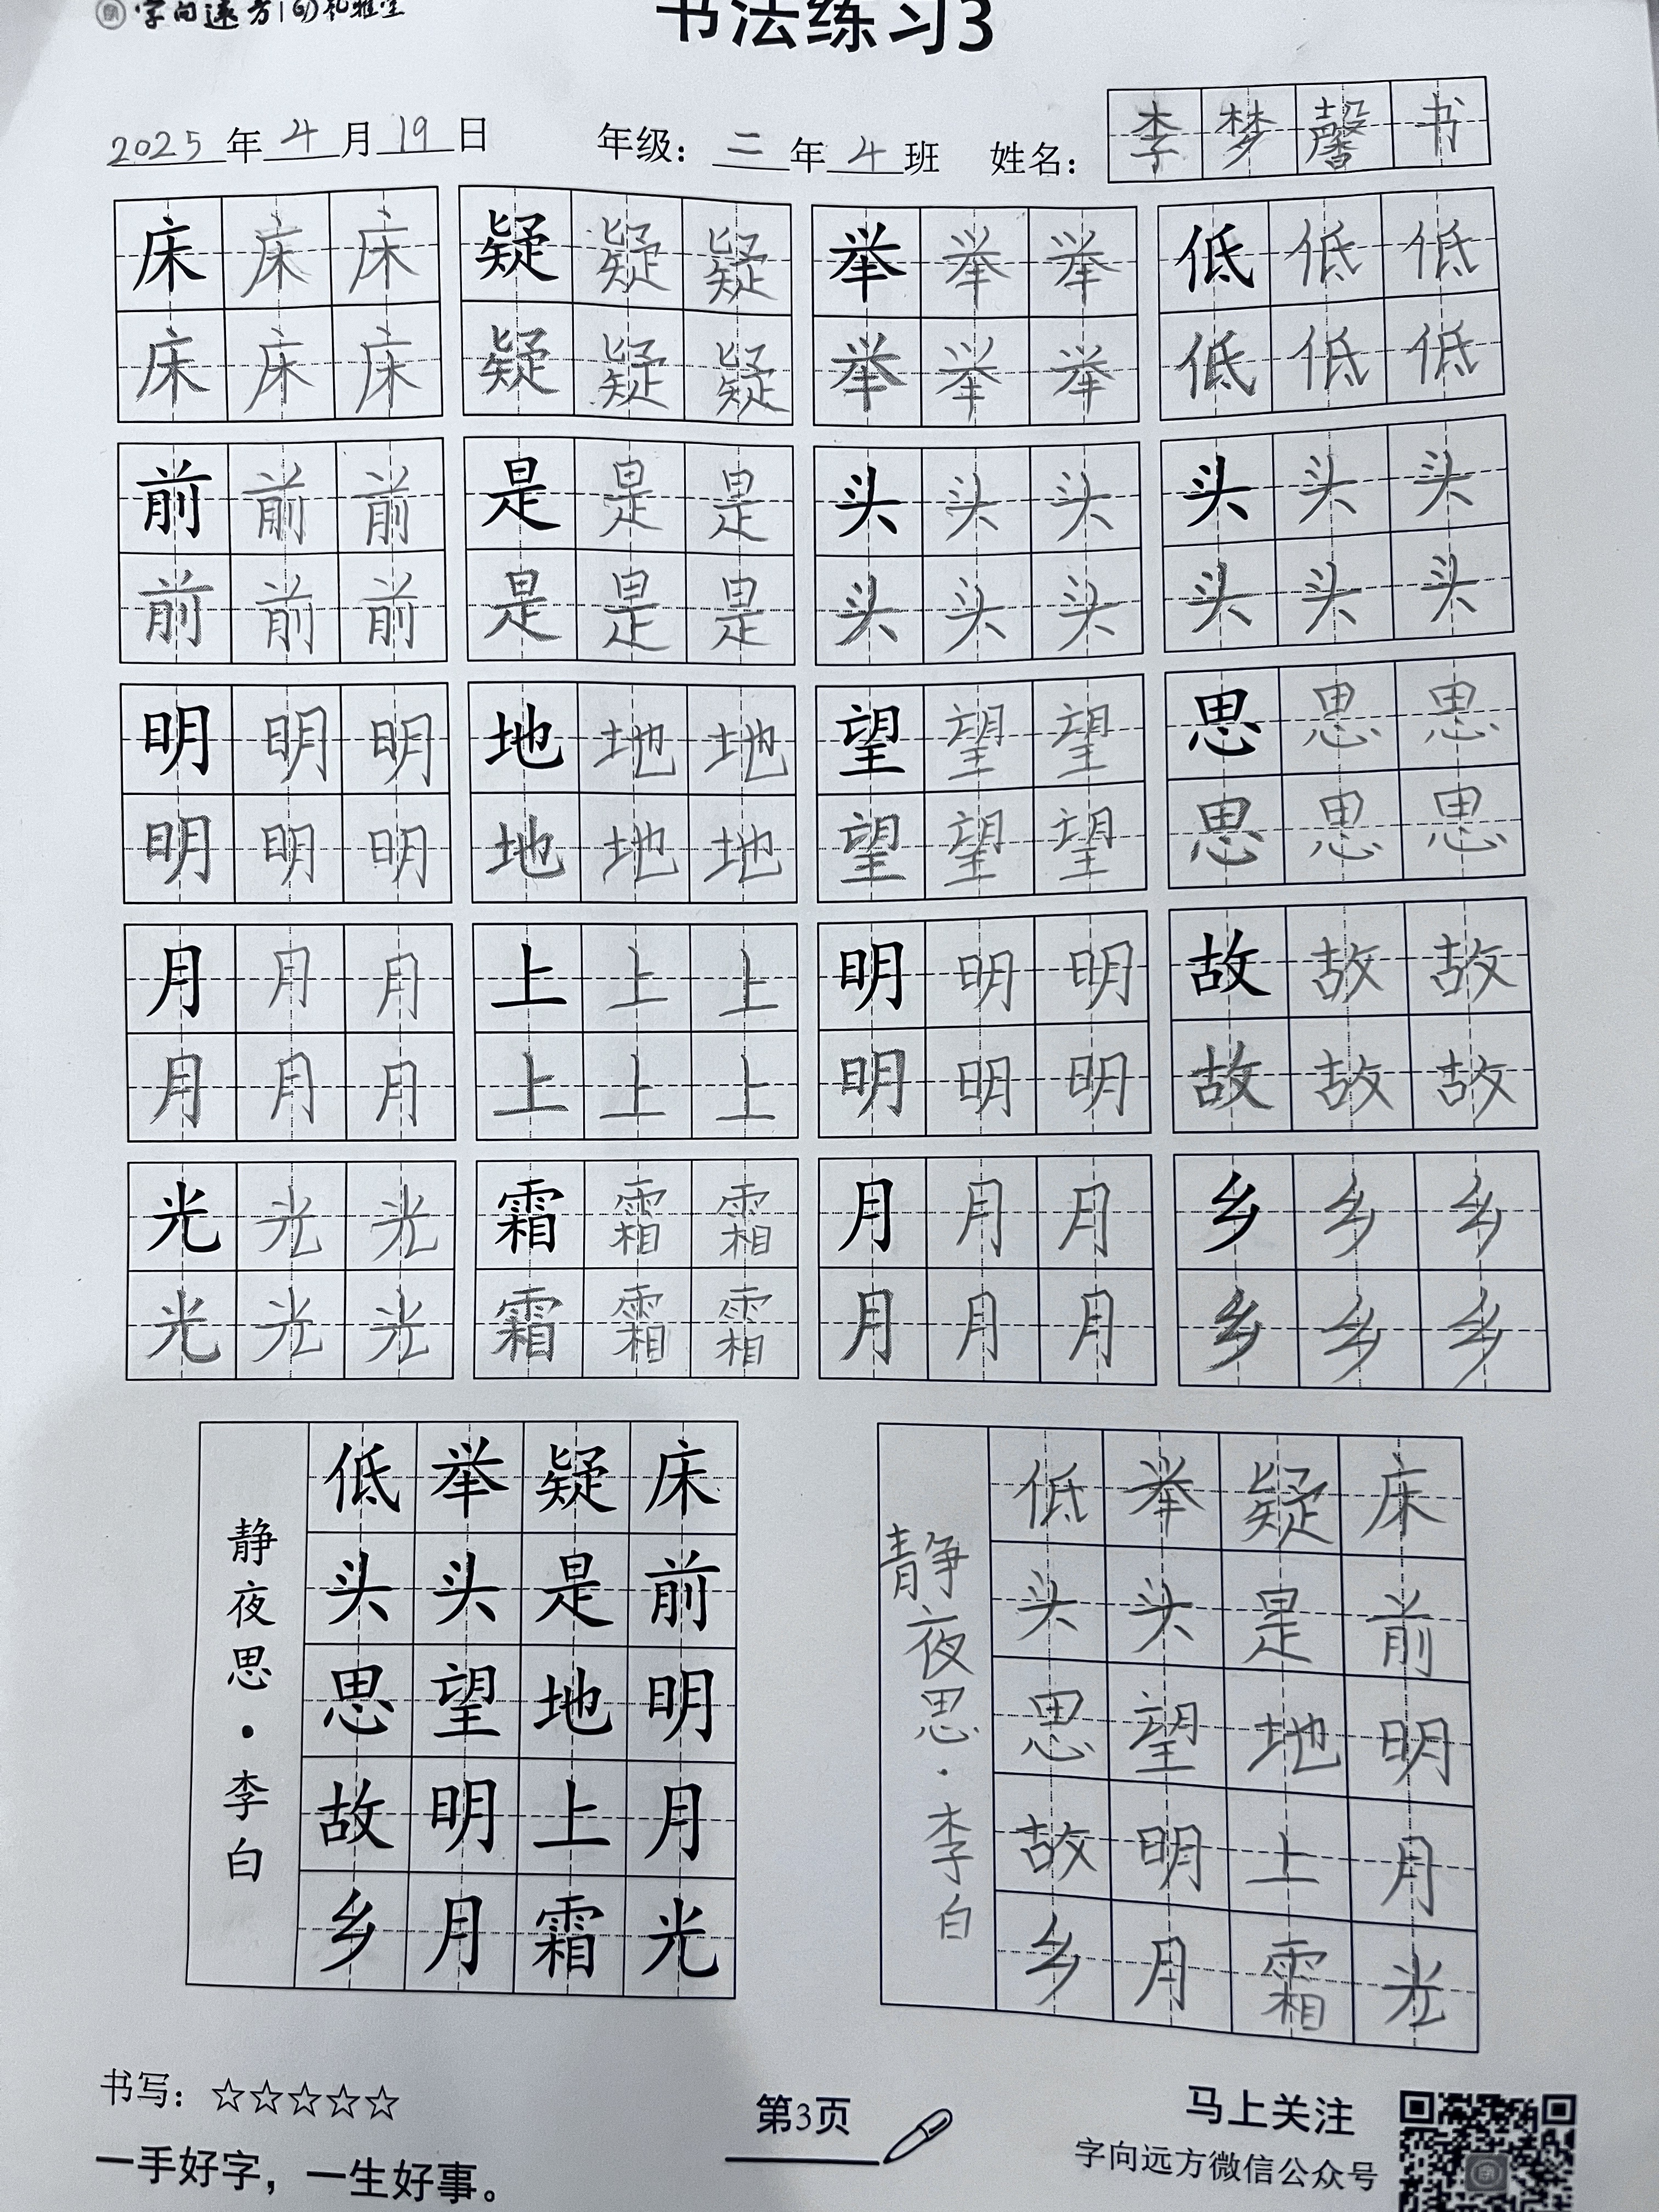 字向远方 礼雅堂
书法练习3
2025年4月19日 年级：二年4班 姓名：李梦馨书
床床床 疑疑疑 举举举 低低低
床床床 疑疑疑 举举举 低低低
前前前 是是是 头头头 头头头
前前前 是是是 头头头 头头头
明明明 地地地 望望望 思思思
明明明 地地地 望望望 思思思
月月月 上上上 明明明 故故故
月月月 上上上 明明明 故故故
光光光 霜霜霜 月月月 乡乡乡
光光光 霜霜霜 月月月 乡乡乡
床前明月光
疑是地上霜
举头望明月
低头思故乡
静夜思·李白
床前明月光
疑是地上霜
举头望明月
低头思故乡
静夜思·李白
书写：☆☆☆☆☆
一手好字，一生好事。
第3页
马上关注
字向远方微信公众号